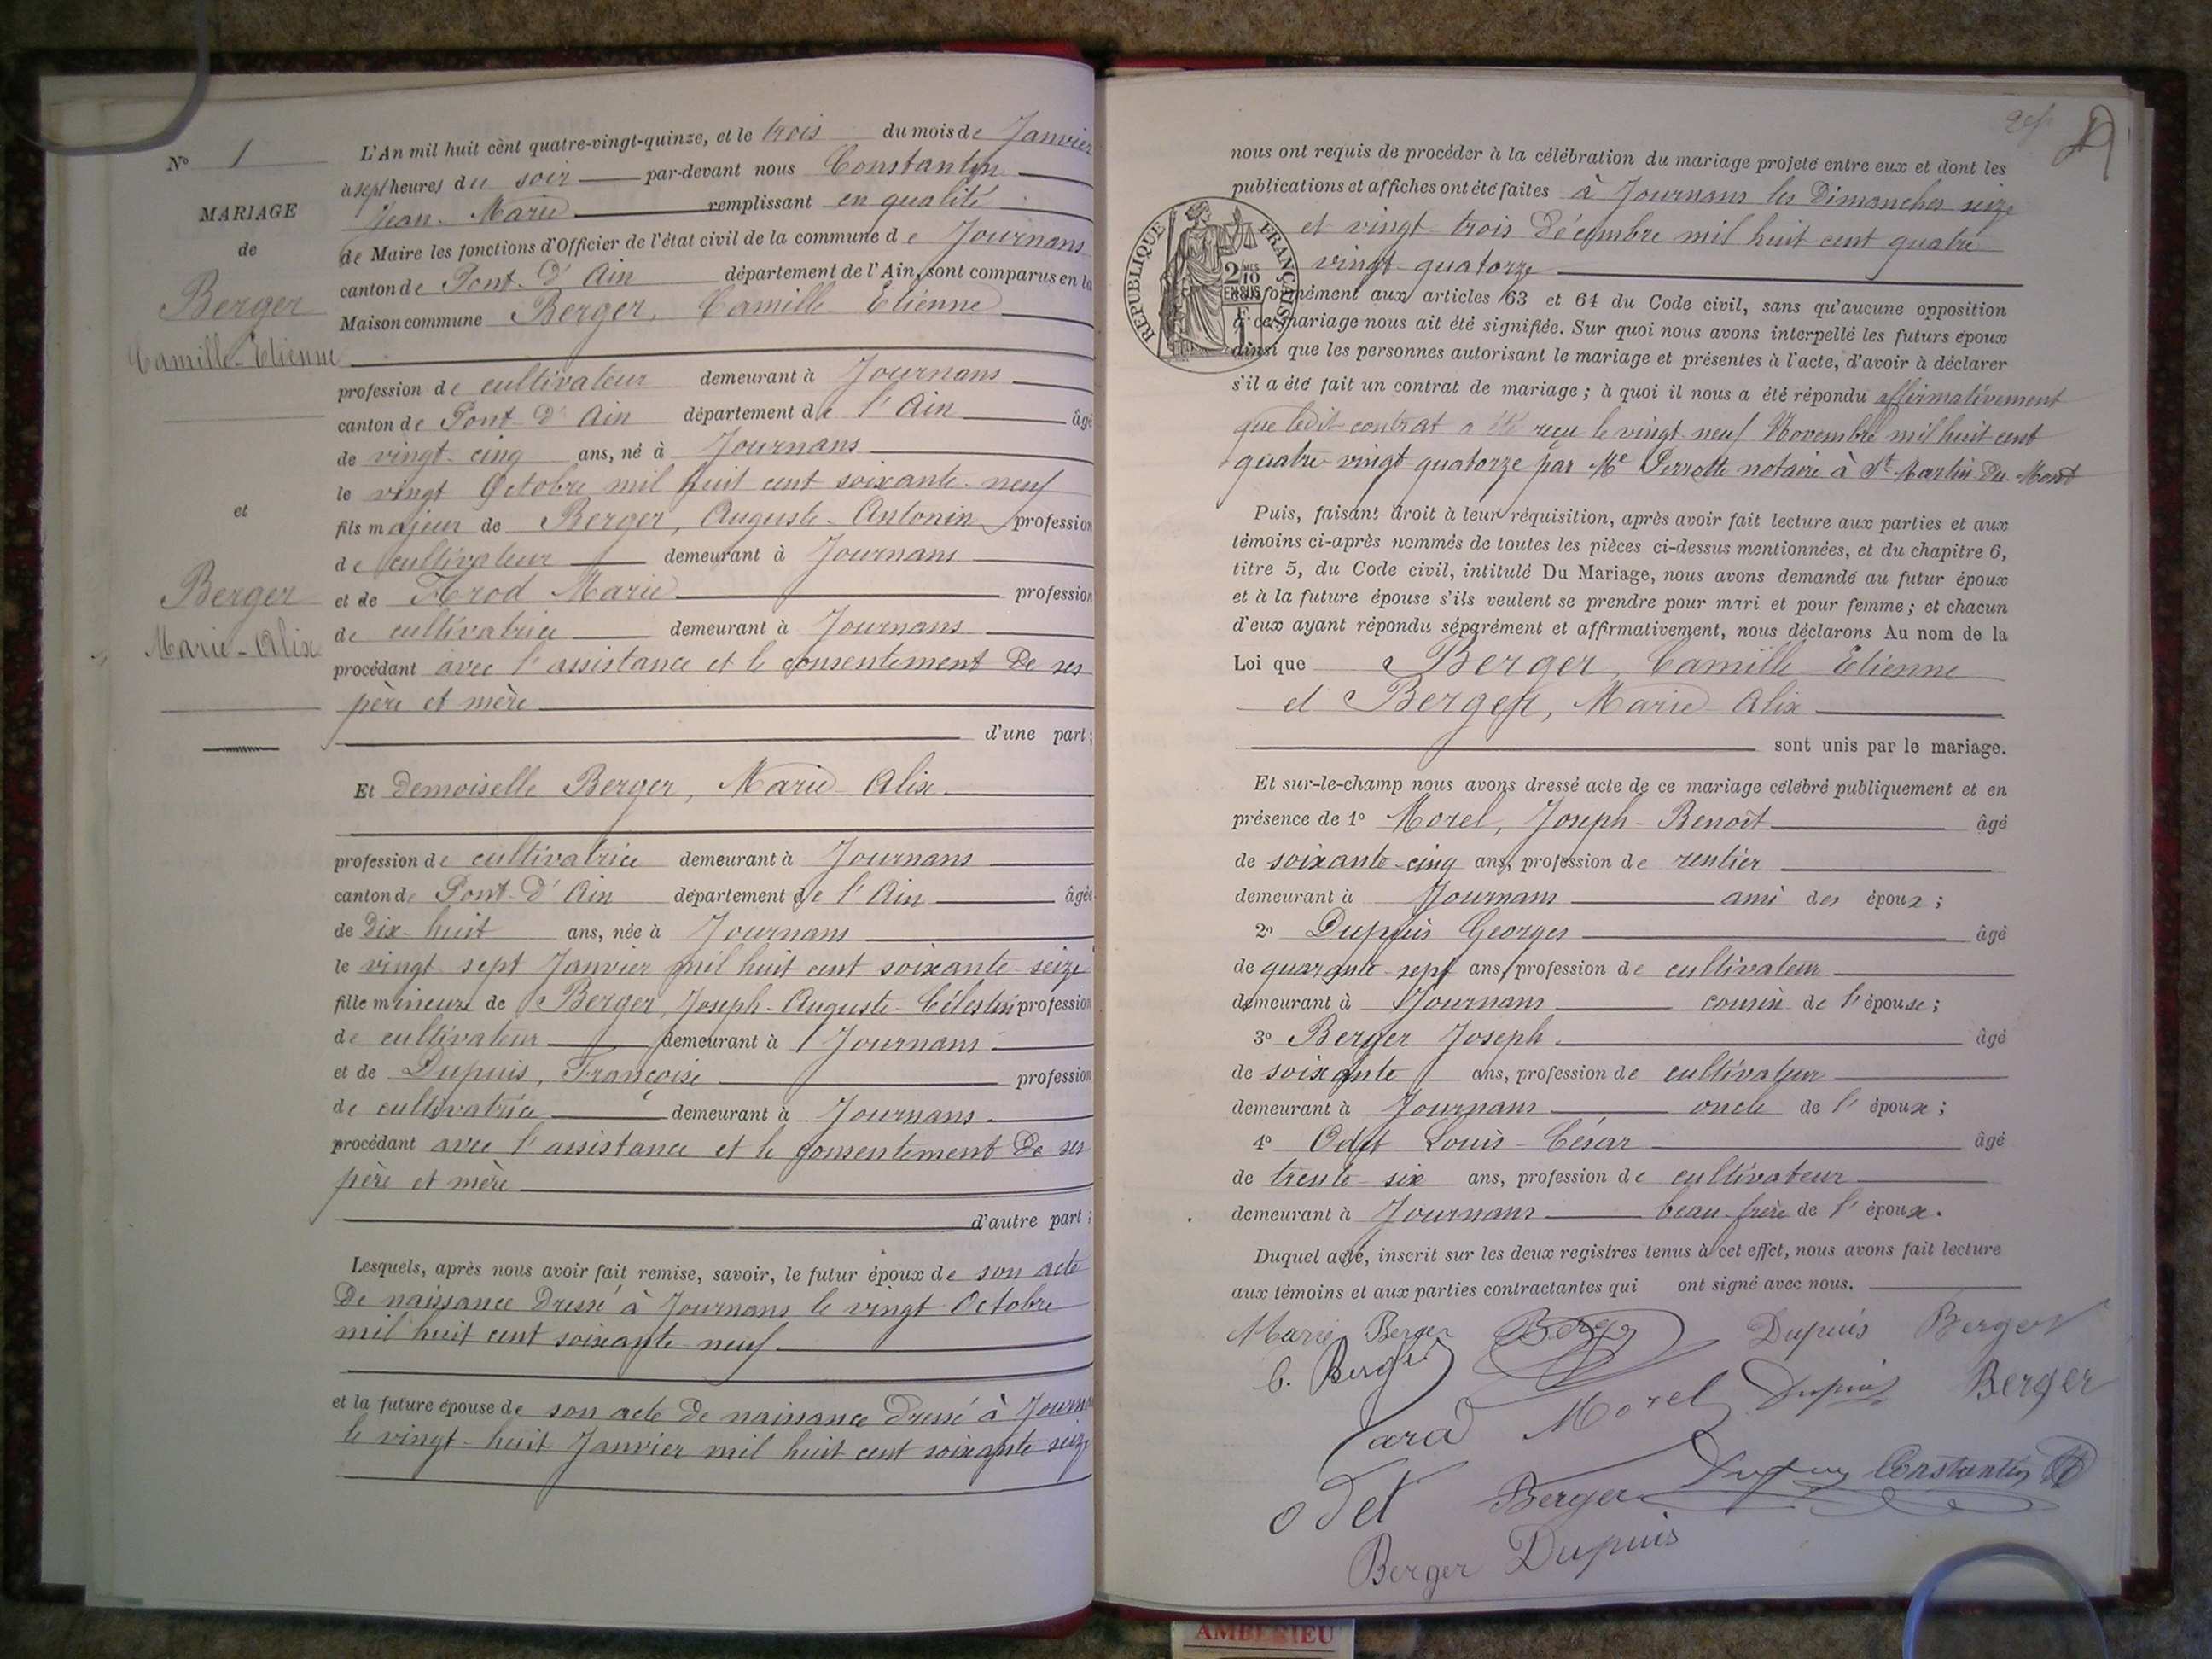 N° 1
MARIAGE
de
Berger
Camille-Etienne
et
Berger
Marie-Alix
L'An mil huit cent quatre-vingt-quinze, et le trois du mois de Janvier
à sept heures du soir par-devant nous Constantin
Jean-Marie remplissant en qualité
de Maire les fonctions d'Officier de l'état civil de la commune de Journans
canton de Pont-d'Ain département de l'Ain, sont comparus en la
Maison commune Berger, Camille Etienne
profession de cultivateur demeurant à Journans
canton de Pont-d'Ain département de l'Ain âgé
de vingt-cinq ans, né à Journans
le vingt Octobre mil huit cent soixante-neuf
fils majeur de Berger, Auguste-Antonin profession
de cultivateur demeurant à Journans
et de Marie profession
de cultivatrice demeurant à Journans
procédant avec l'assistance et le consentement de ses
père et mère
d'une part;
Et Demoiselle Berger, Marie-Alix
profession de cultivatrice demeurant à Journans
canton de Pont-d'Ain département de l'Ain âgée
de dix-huit ans, née à Journans
le vingt-sept Janvier mil huit cent soixante-seize
fille mineure de Berger, Joseph-Auguste-Célestin profession
de cultivateur demeurant à Journans
et de Dupuis, Françoise profession
de cultivatrice demeurant à Journans
procédant avec l'assistance et le consentement de ses
père et mère
d'autre part;
Lesquels, après nous avoir fait remise, savoir, le futur époux de son acte
de naissance dressé à Journans le vingt Octobre
mil huit cent soixante-neuf
et la future épouse de son acte de naissance dressé à Journa
le vingt-huit Janvier mil huit cent soixante seize
nous ont requis de procéder à la célébration du mariage projeté entre eux et dont les
publications et affiches ont été faites à Journans les Dimanches seize
et vingt-trois Décembre mil huit cent quatre
vingt-quatorze
RÉPUBLIQUE FRANÇAISE
2/10
EN SUS
conformément aux articles 63 et 64 du Code civil, sans qu'aucune opposition
à ce mariage nous ait été signifiée. Sur quoi nous avons interpellé les futurs époux
ainsi que les personnes autorisant le mariage et présentes à l'acte, d'avoir à déclarer
s'il a été fait un contrat de mariage; à quoi il nous a été répondu affirmativement
que ledit contrat a été reçu le vingt neuf Novembre mil huit cent
quatre-vingt quatorze par Me Perrotte notaire à St Martin du Mont
Puis, faisant droit à leur réquisition, après avoir fait lecture aux parties et aux
témoins ci-après nommés de toutes les pièces ci-dessus mentionnées, et du chapitre 6,
titre 5, du Code civil, intitulé Du Mariage, nous avons demandé au futur époux
et à la future épouse s'ils veulent se prendre pour mari et pour femme; et chacun
d'eux ayant répondu séparément et affirmativement, nous déclarons Au nom de la
Loi que Berger, Camille Etienne
et Berger, Marie Alix
sont unis par le mariage.
Et sur-le-champ nous avons dressé acte de ce mariage célébré publiquement et en
présence de 1° Morel, Joseph-Benoît âgé
de soixante-cinq ans, profession de rentier
demeurant à Journans ami des époux;
2° Dupuis Georges âgé
de quarante-sept ans, profession de cultivateur
demeurant à Journans cousin de l'épouse;
3° Berger Joseph âgé
de soixante ans, profession de cultivateur
demeurant à Journans oncle de l'époux;
4° Odet Louis-César âgé
de trente-six ans, profession de cultivateur
demeurant à Journans beau-frère de l'époux.
Duquel acte, inscrit sur les deux registres tenus à cet effet, nous avons fait lecture
aux témoins et aux parties contractantes qui ont signé avec nous.
Marie Berger Berger Dupuis Berger
C. Berger
Morel Dupuis Berger
odet Berger Dupuy Constantin
Berger Dupuis
AMBERIEU